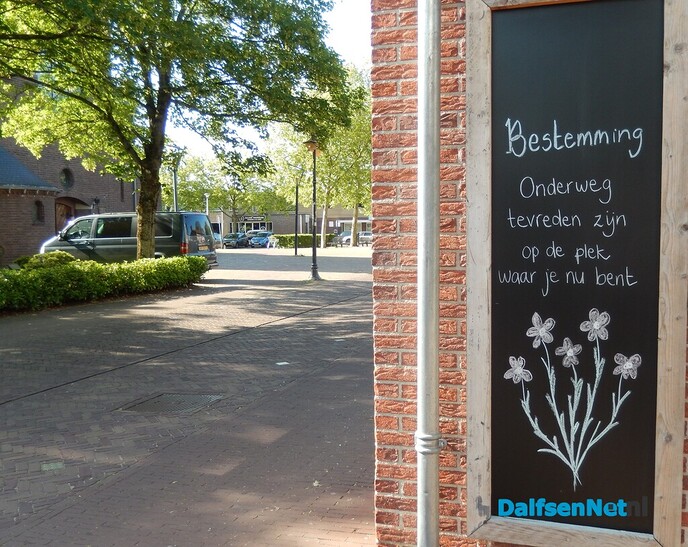 Bestemming
Onderweg
tevreden zijn
op de plek
waar je nu bent
DalfsenNet.nl